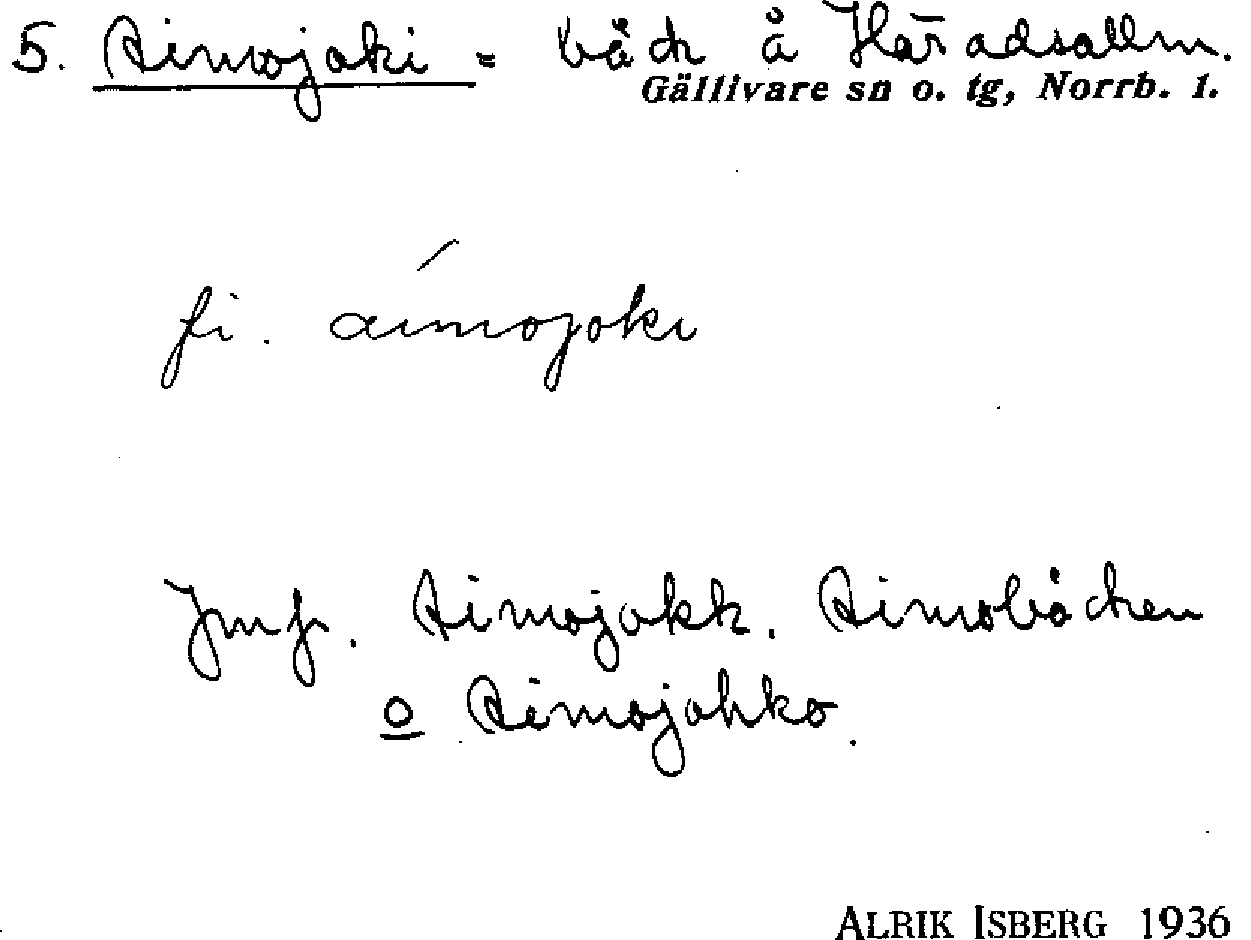 5. Aimojoki = bäck å Häradsallm.
Gällivare sn o. tg, Norrb. l.
fi. aimojoki
Jmfr. Aimojokk. Aimobäcken
o Aimojohko.
ALRIK ISBERG 1936